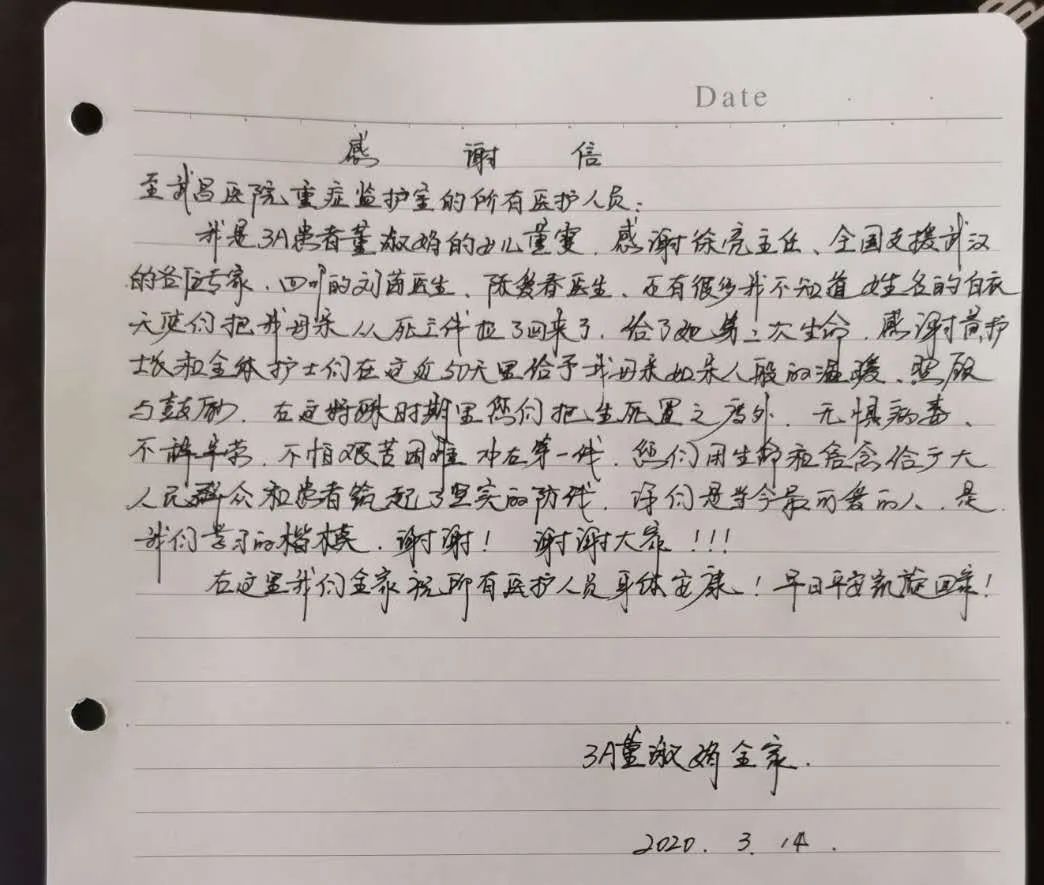 Date
感 谢 信
至武昌医院重症监护室的所有医护人员:
我是3A患者董淑娟的女儿董雯.感谢徐亮主任、全国支援武汉
的各位专家、四川的刘茵医生、陈爱香医生、还有很多我不知道姓名的白衣
天使们把我母亲从死亡线拉了回来了.给了她第二次生命.感谢黄护
士长和全体护士们在这近50天里给予我母亲如亲人般的温暖、照顾
与鼓励.在这特殊时期里您们把生死置之度外.无惧病毒、
不辞辛劳.不怕艰苦困难冲在第一线.您们用生命和信念给广大
人民群众和患者筑起了坚实的防线.你们是当今最可爱的人.是
我们学习的楷模.谢谢! 谢谢大家!!!
在这里我们全家祝所有医护人员身体安康!早日平安凯旋回家!
3A董淑娟全家.
2020.3.14.